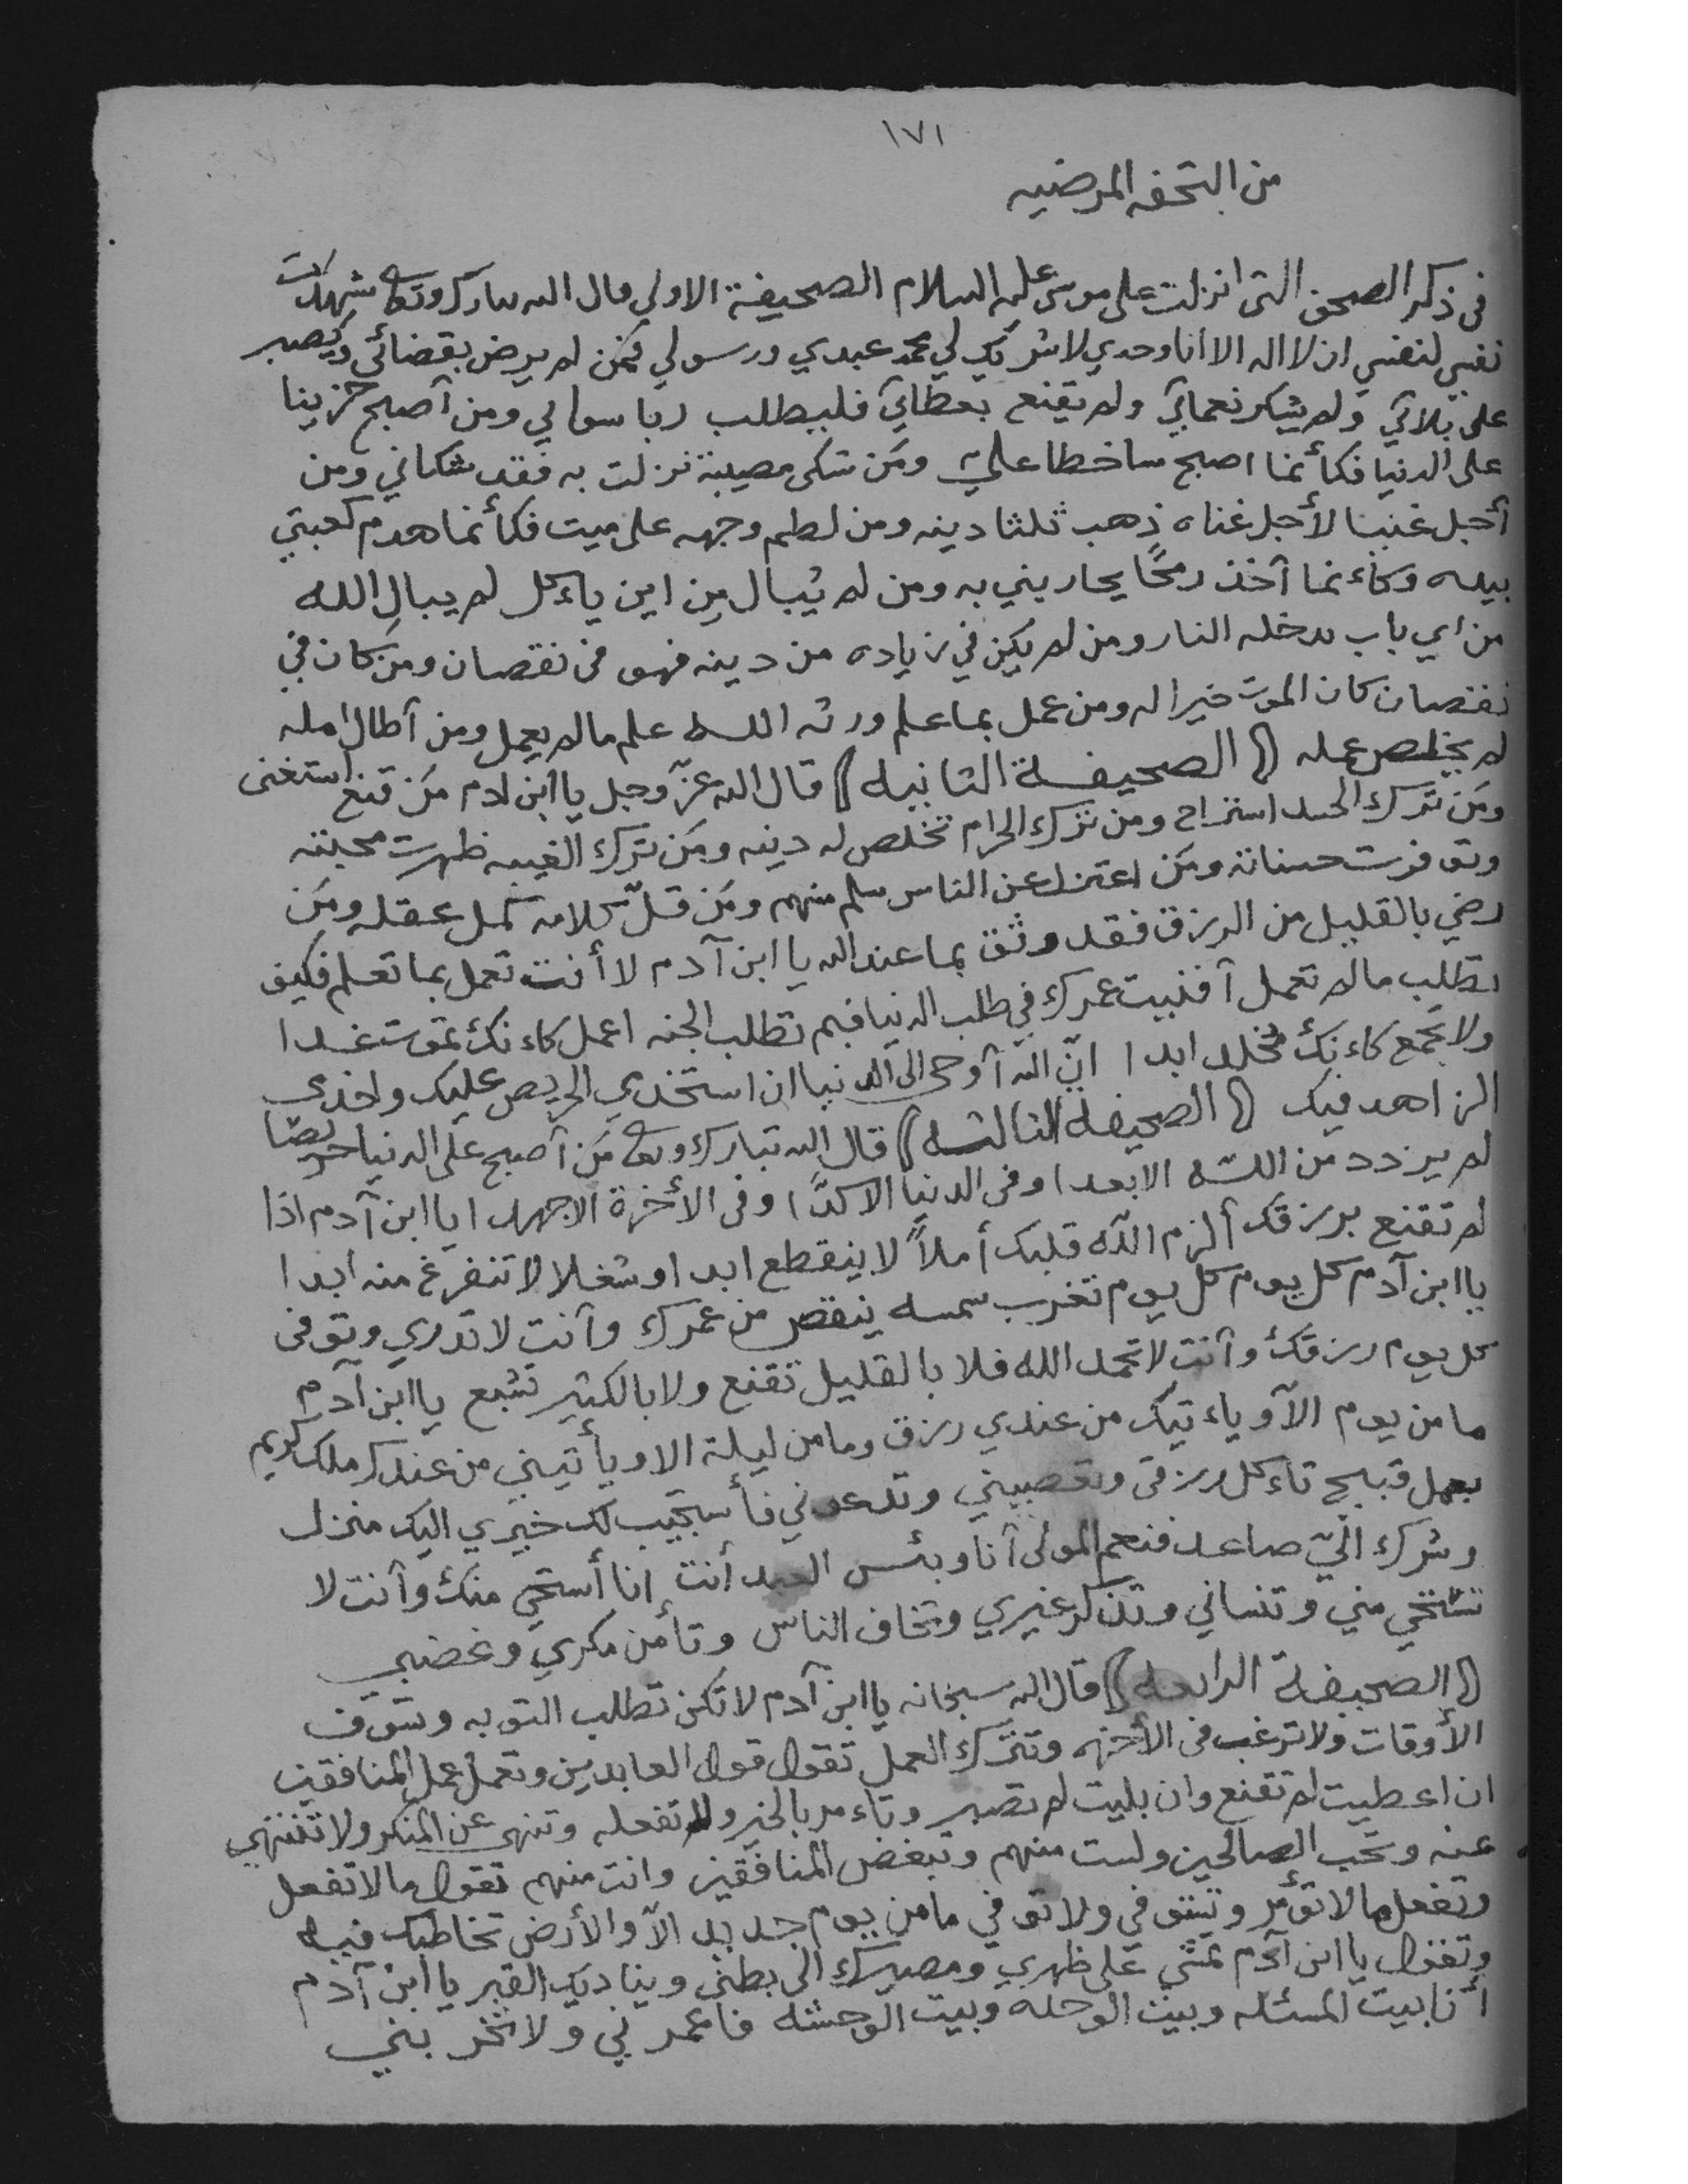 ١٧١
من التحفه المرضيه
في ذكر الصحف التي انزلت على موسى عليه السلام الصحيفة الاولى قال الله تبارك وتعالى شهدت
نفسي لنفسي ان لا اله الا انا وحدي لا شريك لي محمد عبدي ورسولي فمن لم يرض بقضائي ويصبر
على بلائي ولم يشكر نعمائي ولم يقنع بعطائي فليطلب ربا سوائي ومن أصبح حزينا
على الدنيا فكأنما اصبح ساخطا علي ومن شكى مصيبة نزلت به فقد شكاني ومن
أجل غنيا لأجل غناه ذهب ثلثا دينه ومن لطم وجهه على ميت فكأنما هدم كعبتي
بيده وكاءنما آخذ رمحًا يحاربني به ومن لم يُبال مِن اين ياءكل لم يبالِ الله
من اي باب يدخله النار ومن لم يكن في زياده من دينه فهو في نقصان ومن كان في
نقصان كان الموت خيرا له ومن عمل بما علم ورثه الله علم مالم يعمل ومن أطال امله
لم يخلص عمله (( الصحيفة الثانيه )) قال الله عزّ وجل يا ابن ادم مَن قنع استغنى
ومَن تَرك الحسد استراح ومن ترك الحرام تخلص له دينه ومَن ترك الغيبه ظهرت محبته
وتوفرت حسناته ومَن اعتزل عن الناس سلم منهم ومَن قلّ كلامه كمل عقله ومَن
رضي بالقليل من الرزق فقد وثق بما عند الله يا ابن آدم لا أنت تعمل بما تعلم فكيف
تطلب مالم تعمل آفنيت عمرك في طلب الدنيا فبم تطلب الجنه اعمل كاءنك تموت غدا
ولا تجمع كاءنك مُخلد ابدا انّ الله آوحى الى الدنيا ان استخدمي الحريص عليك واخدمي
الزاهد فيك (( الصحيفه الثالثه )) قال الله تبارك وتعالى مَن آصبح على الدنيا حريصًا
لم يزدد من الله الا بعدا وفي الدنيا الا كدًّا وفي الأخرة الا جهدا يا ابن آدم اذا
لم تقنع برزقك ألزم الله قلبك أملاً لا ينقطع ابدا وشغلا لا تنفرغ منه ابدا
يا ابن آدم كل يوم كل يوم تغرب شمسه ينقص من عمرك وآنت لا تدري وتوفى
كل يوم رزقك وآنت لا تحمد الله فلا بالقليل تقنع ولا بالكثير تشبع يا ابن آدم
ما من يوم الآ وياءتيك من عندي رزق وما من ليلة الا ويأتيني من عندك ملك كريم
بعمل قبيح تاءكل رزقي وتعصيني وتدعوني فأستجيب لك خيري اليك منزل
وشرك اليّ صاعد فنعم المولى آنا وبئس العبد أنت انا أستحي منك وآنت لا
تستحي مني وتنساني وتذكر غيري وتخاف الناس وتأمن مكري وغضبي
(( الصحيفة الرابعه )) قال الله سبحانه يا ابن آدم لا تكن تطلب التوبه وتسوّف
الأوقات ولا ترغب في الأخره وتترك العمل تقول قول العابدين وتعمل عمل المنافقين
ان اعطيت لم تقنع وان بليت لم تصبر وتاءمر بالخير ولم تفعله وتنهى عن المنكر ولا تنتهي
عنه وتحب الصالحين ولست منهم وتبغض المنافقين وانت منهم تقول ما لا تفعل
وتفعل ما لا تؤمر وتستوفي ولا توفي ما من يوم جديد الآ والأرض تخاطبك فيه
وتقول يا ابن آدم تمشي على ظهري ومصيرك الى بطني ويناديك القبر يا ابن آدم
أنا بيت المسئله وبيت الوحده وبيت الوحشه فاعمرني ولا تخربني